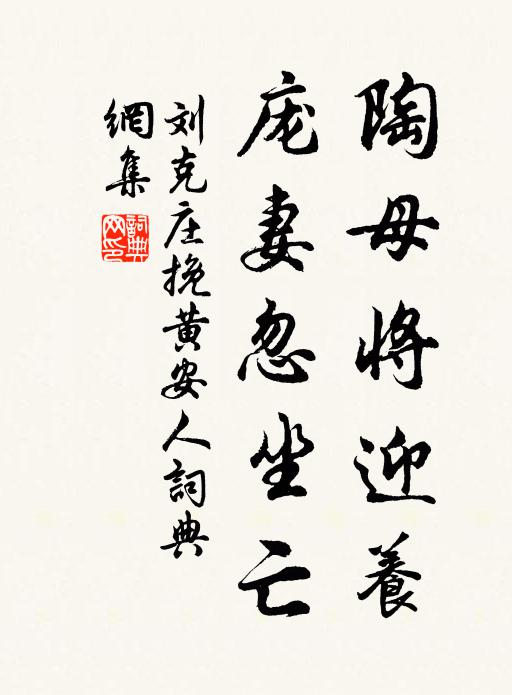 陶母将迎養
庞妻忽坐亡
刘克庄挽黄安人詞典
網集
詞典
网印